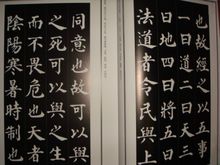 也故經之以五事
一曰道二曰天三
曰地四曰將五曰
法道者令民與上
同意也故可以與
之死可以與之生
而不畏危也天者
陰陽寒暑時制也